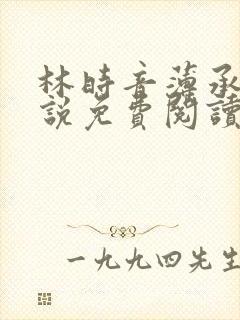 林時音薄承
說免費閱讀
一九九四先生